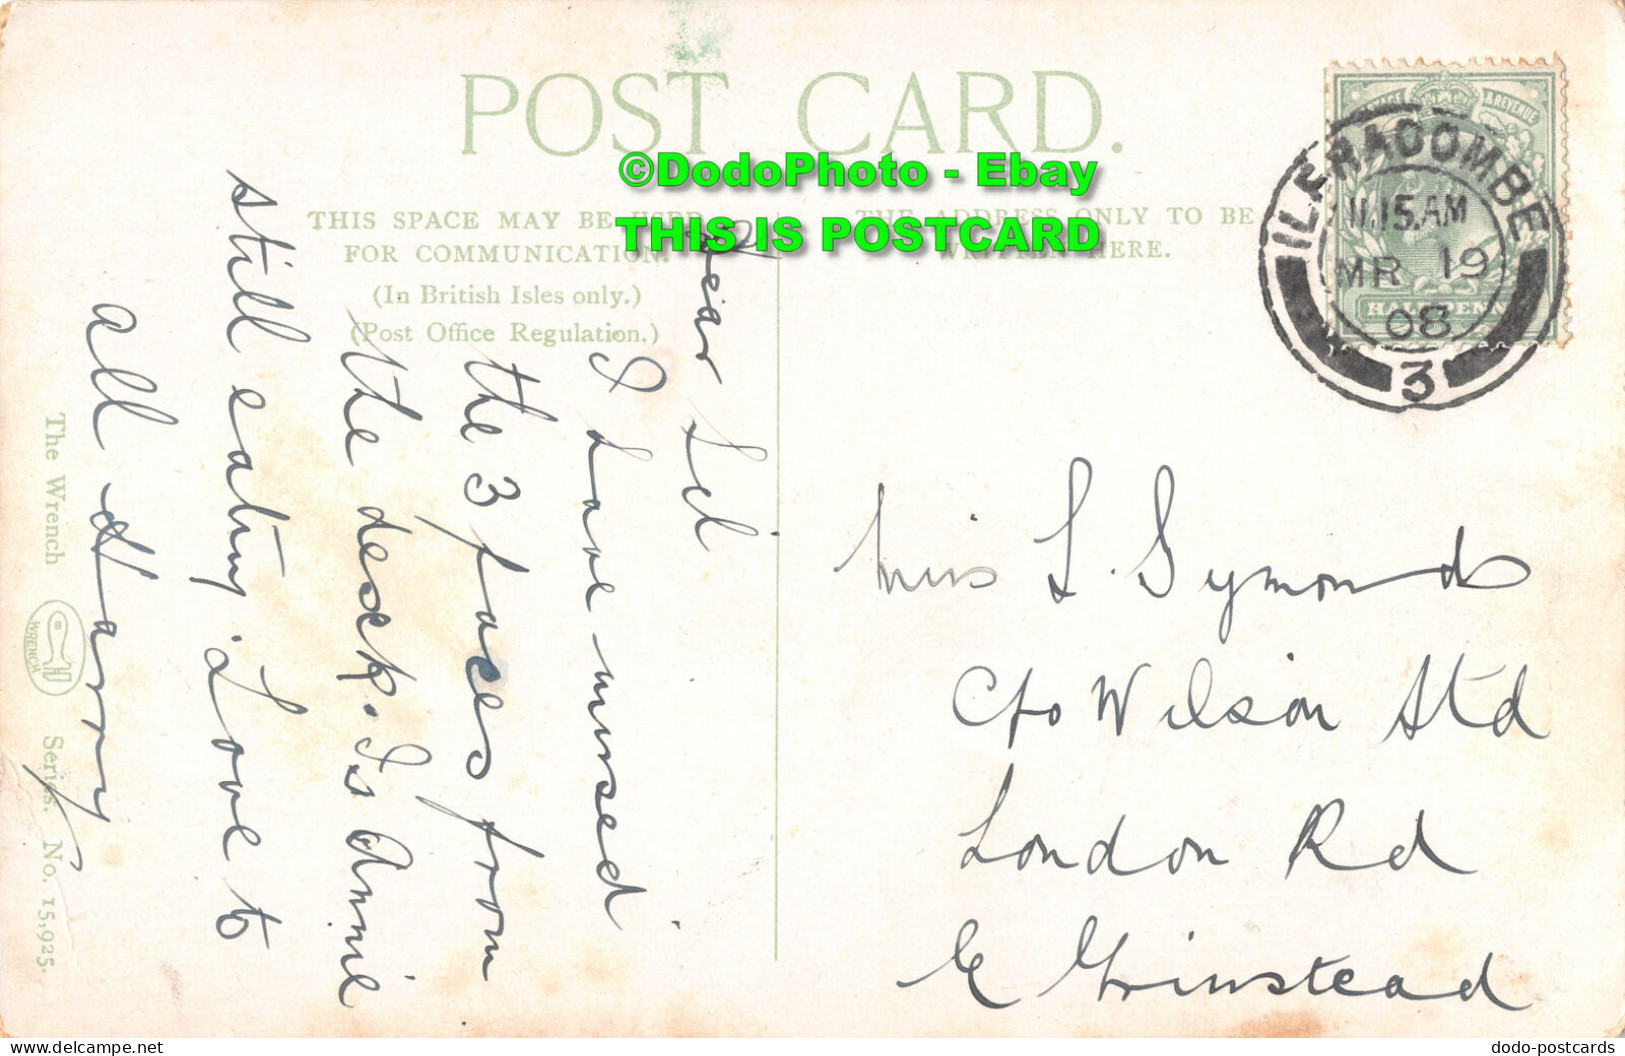 POST CARD.
©DodoPhoto - Ebay
THIS IS POSTCARD
THIS SPACE MAY BE USED
FOR COMMUNICATION.
(In British Isles only.)
(Post Office Regulation.)
THE ADDRESS ONLY TO BE
WRITTEN HERE.
POSTAGE & REVENUE
HALFPENNY
ILFRACOMBE
11.15 AM
MR 19
08
3
Dear Lil
I have missed
the 3 faces from
the desk. Is Annie
still eating. Love to
all Harry
Miss L. Symonds
C/o Wilson Std
London Rd
E Grinstead
The Wrench
WRENCH
Series. No. 15,925.
dodo-postcards